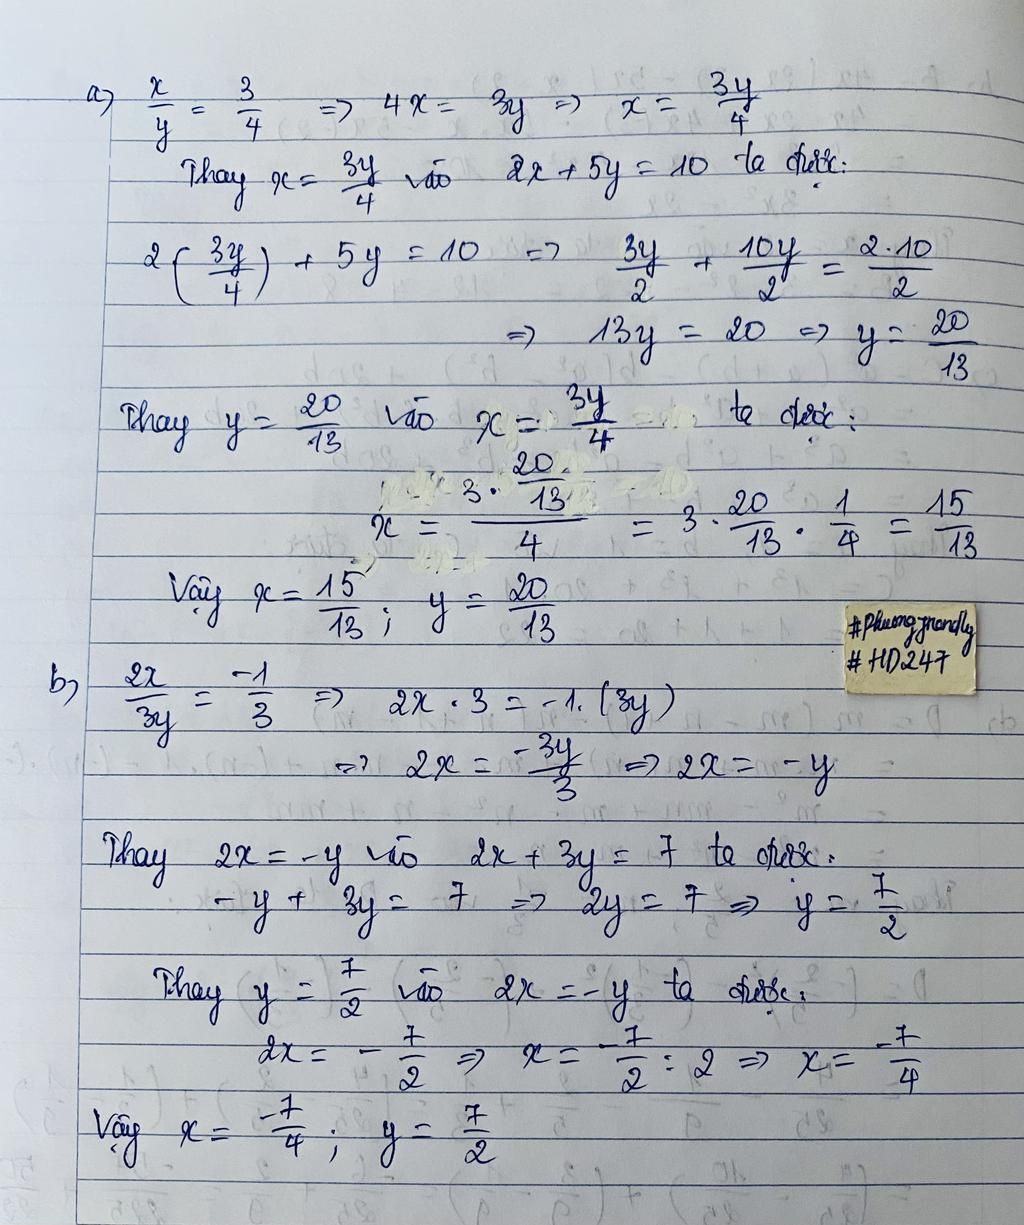 a) x/y = 3/4 => 4x = 3y => x = 3y/4
Thay x = 3y/4 vào 2x + 5y = 10 ta được:
2(3y/4) + 5y = 10 => 3y/2 + 10y/2 = 2·10/2
=> 13y = 20 => y = 20/13
Thay y = 20/13 vào x = 3y/4 ta được:
x = (3·20/13)/4 = 3·20/13·1/4 = 15/13
Vậy x = 15/13; y = 20/13
#HD247
b) 2x/3y = -1/3 => 2x·3 = -1.(3y)
=> 2x = -3y/3 => 2x = -y
Thay 2x = -y vào 2x + 3y = 7 ta được:
-y + 3y = 7 => 2y = 7 => y = 7/2
Thay y = 7/2 vào 2x = -y ta được:
2x = -7/2 => x = -7/2 : 2 => x = -7/4
Vậy x = -7/4; y = 7/2